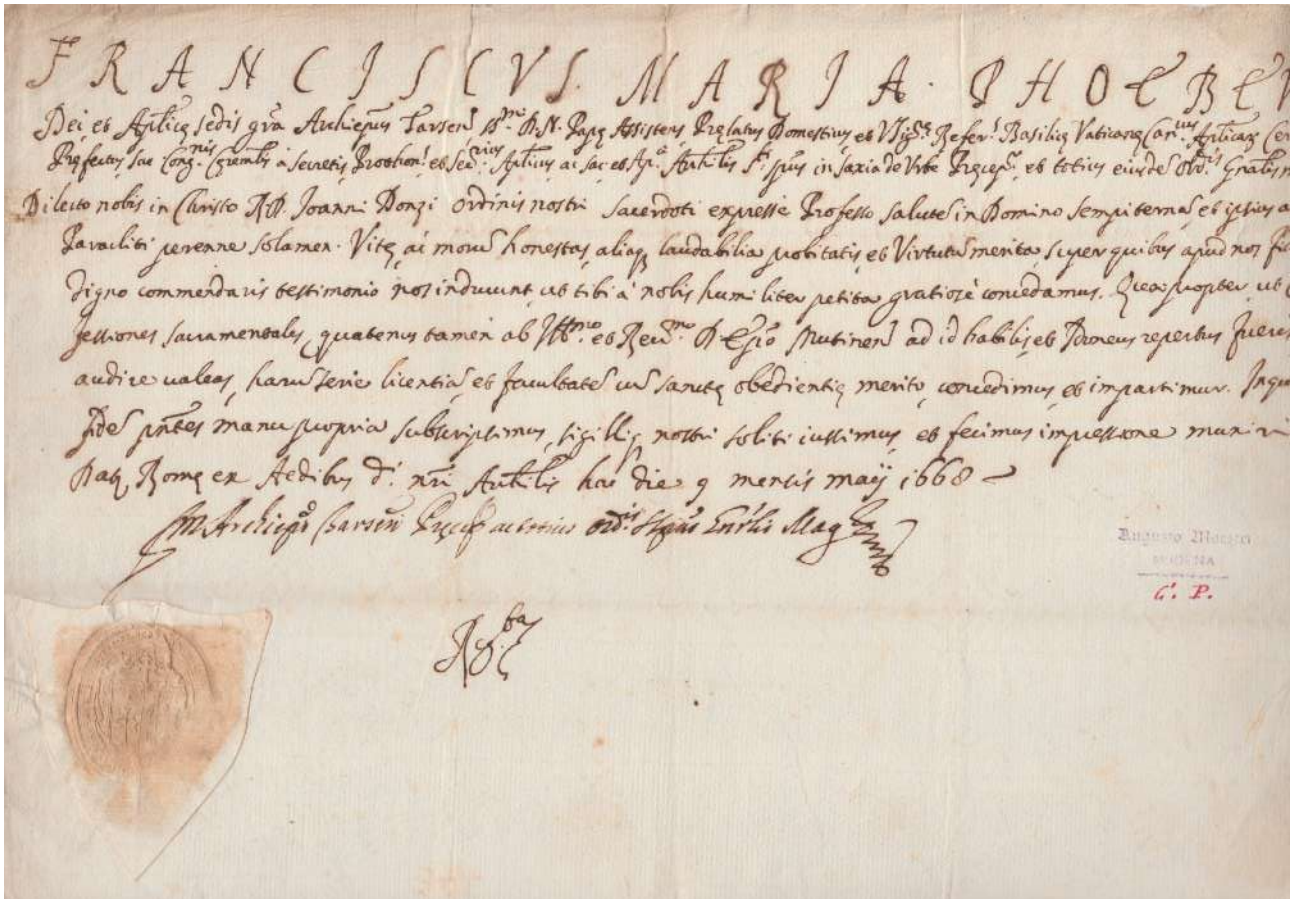 FRANCISCVS. MARIA. PHOEBEV
Dei et Aplicę sedis grã Archiepus Tarseñ S.mi D.N. Papę Assistens Pręlatus Domesticus, et Vtq; Sig.rę Refer.s Basilicę Vaticanę Can.cus Aplicarũ Cer
Pręfectus, Sac. Cong.nis Cęremlis à secretis, Prothon.s et Sac. et Ap. Archilis S. Spũs in saxia de Vrbe Pręcep.r et totius eiusdẽ Ord.is Gñalis
Dilecto nobis in Christo R.P. Joanni Donzi ordinis nostri sacerdoti expressè Professo salutẽ in Domino sempiternã, et ipsius a
Paracliti perenne solamen. Vitę, ac morũ honestas, aliaq; laudabilia probitatis, et Virtutũ merita, super quibus apud nos fi
digno commendaris testimonio nos inducunt, ut tibi à nobis humiliter petita gratiosè concedamus. Quapropter ut
fessiones sacramentales, quatenus tamen ab Ill.mo et Reu.mo D. Ep̃o Mutineñ ad id habilis, et Idoneus repertus fueris
audire ualeas, harũ serie licentiã, et facultatẽ cũ sanctę obedientię merito, concedimus, et impartimur. In quo
fidẽ pñtes manu propria subscripsimus, sigilliq; nostri soliti iussimus, et fecimus impressione muniri
Datę Romę ex Aedibus d.i nri Archilis hac die 9 mensis maij 1668
F.M. Archiep.us Tarseñ Pręcep.r ac totius ord.is Gñalis Mag.r
Reg.ta
Augusto Maestri
MODENA
G. P.